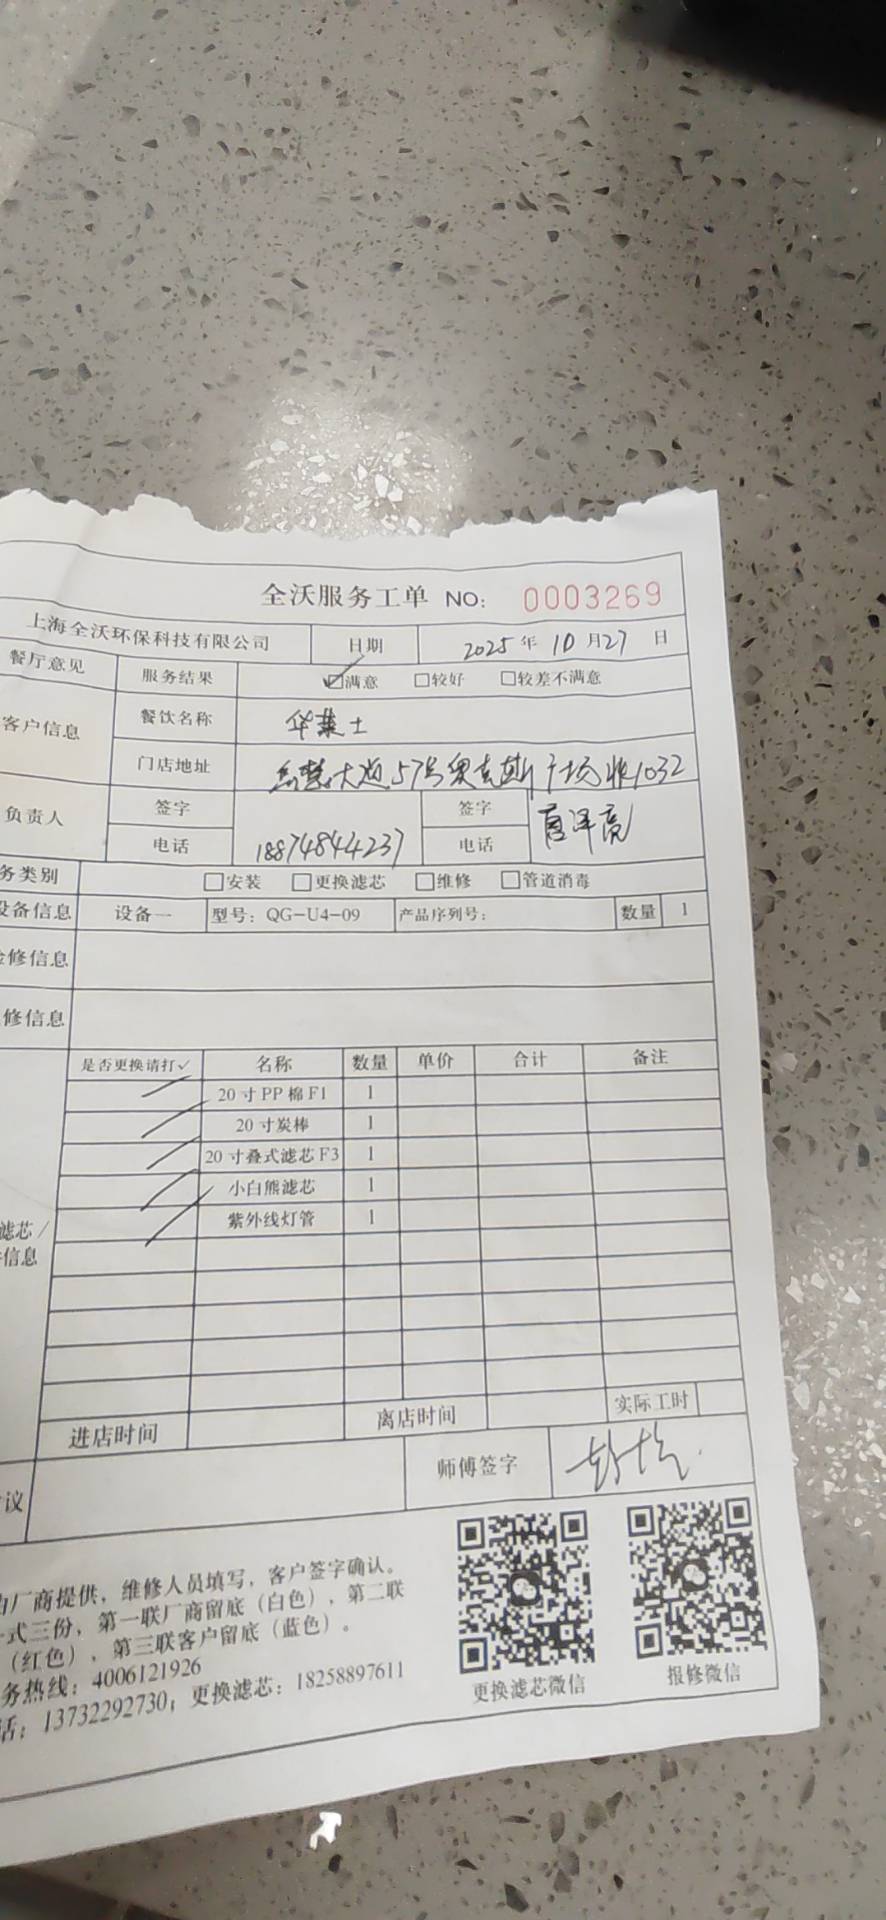 全沃服务工单 NO: 0003269
上海全沃环保科技有限公司 日期 2025 年 10 月 27 日
餐厅意见 服务结果 ☑满意 □较好 □较差不满意
客户信息 餐饮名称 华莱士
门店地址 大道57号奥克斯广场 1032
负责人 签字 签字
电话 18874844237 电话
务类别 □安装 □更换滤芯 □维修 □管道消毒
设备信息 设备一 型号: QG-U4-09 产品序列号: 数量 1
修信息
修信息
是否更换请打✓ 名称 数量 单价 合计 备注
20寸PP棉F1 1
20寸炭棒 1
20寸叠式滤芯F3 1
小白熊滤芯 1
紫外线灯管 1
滤芯/
信息
进店时间 离店时间 实际工时
议 师傅签字
由厂商提供，维修人员填写，客户签字确认。
式三份，第一联厂商留底（白色），第二联
（红色），第三联客户留底（蓝色）。
务热线: 4006121926
话: 13732292730; 更换滤芯: 18258897611
更换滤芯微信 报修微信